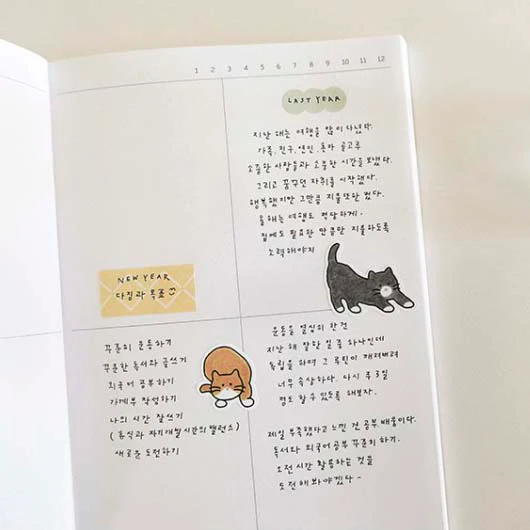 1 2 3 4 5 6 7 8 9 10 11 12
LAST YEAR
지난 해는 여행을 많이 다녔다.
가족, 친구, 연인, 혼자 골고루
소중한 사람들과 소중한 시간을 보냈다.
그리고 꿈꾸던 자취를 시작했다.
행복했지만 그만큼 지출또한 컸다.
올해는 여행도 적당하게.
집에도 필요한 만큼만 지출하도록
노력해야지
NEW YEAR
다짐과 목표
꾸준히 운동하기
꾸준한 독서와 글쓰기
외국어 공부하기
가계부 작성하기
나의 시간 잘쓰기
(휴식과 자기개발시간의 밸런스)
새로운 도전하기
운동을 열심히 한건
지난 해 잘한 일 중 하나인데
독립을 하며 그 루틴이 깨져버려
너무 속상하다. 다시 주 3일
정도 할 수 있도록 해보자.
제일 부족했다고 느낀 건 공부, 배움이다.
독서와 외국어 공부 꾸준히 하기.
오전 시간 활용하는 것을
도전해봐야겠다~